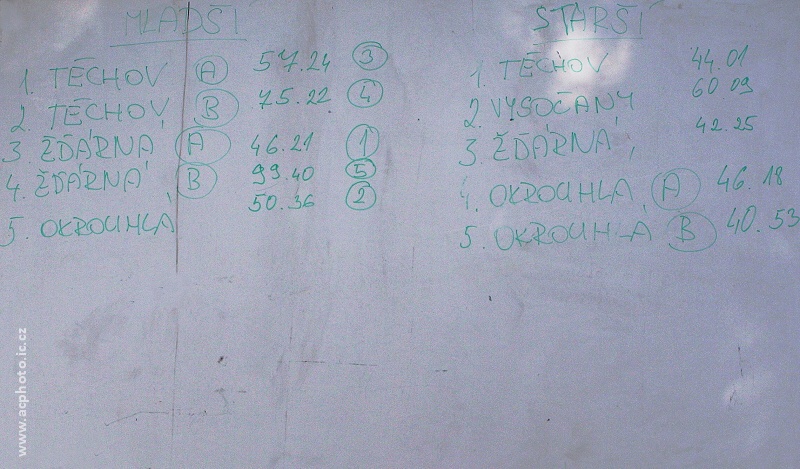 MLADŠÍ
1. TĚCHOV A 57.24 3
2. TĚCHOV B 75.22 4
3 ŽĎÁRNÁ A 46.21 1
4. ŽĎÁRNÁ B 99.40 5
5. OKROUHLÁ 50.36 2
STARŠÍ
1. TĚCHOV 44.01
2 VYSOČANY 60 09
3. ŽĎÁRNÁ 42.25
4. OKROUHLA A 46.18
5. OKROUHLA B 40.53
www.acphoto.ic.cz